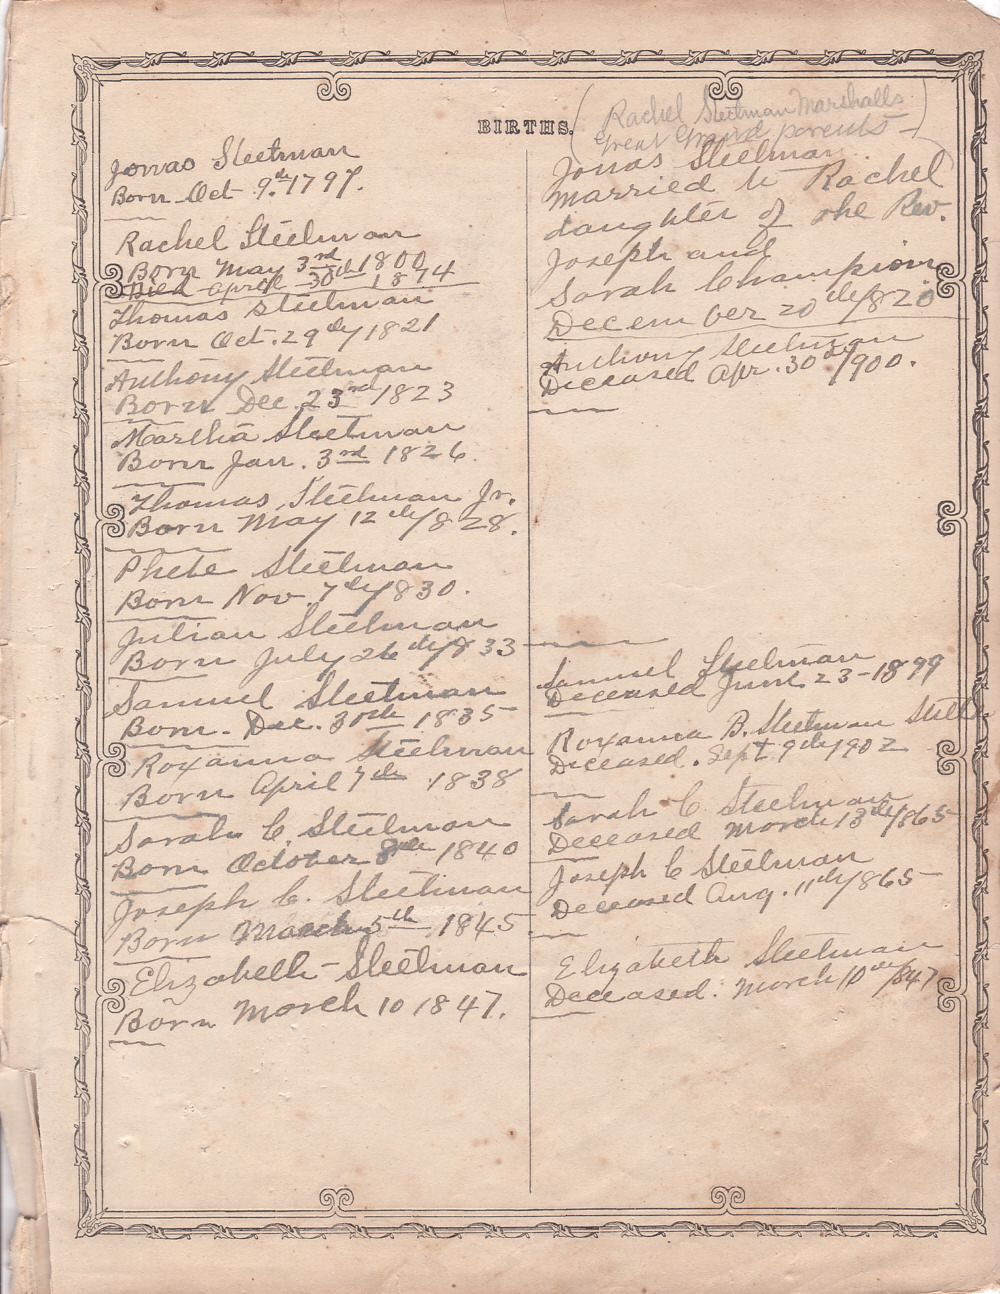 BIRTHS.
Jonas Steelman
Born Oct 9th 1797.
Rachel Steelman
Born May 3rd 1800
Died April 30th 1874
Thomas Steelman
Born Oct. 29th/1821
Anthony Steelman
Born Dec. 23rd 1823
Martha Steelman
Born Jan. 3rd 1826.
Thomas Steelman Jr.
Born May 12th/828.
Phebe Steelman
Born Nov. 7th/830.
Julian Steelman
Born July 26th/833
Samuel Steelman
Born. Dec. 30th 1835
Roxanna Steelman
Born April 7th 1838
Sarah C. Steelman
Born October 8th 1840
Joseph C. Steelman
Born March 5th 1845.
Elizabeth Steelman
Born March 10 1847.
(Rachel Steelman Marshalls
Great Grand parents)
Jonas Steelman
Married to Rachel
daughter of the Rev.
Joseph and
Sarah Champion
December 20th/820
Anthony Steelman
Deceased Apr. 30th/900.
Samuel Steelman
Deceased June 23-1899
Roxanna B. Steelman
Deceased. Sept 9th/902
Sarah C Steelman
Deceased March 13th/865
Joseph C Steelman
Deceased Aug. 11th/865
Elizabeth Steelman
Deceased. March 10th/847